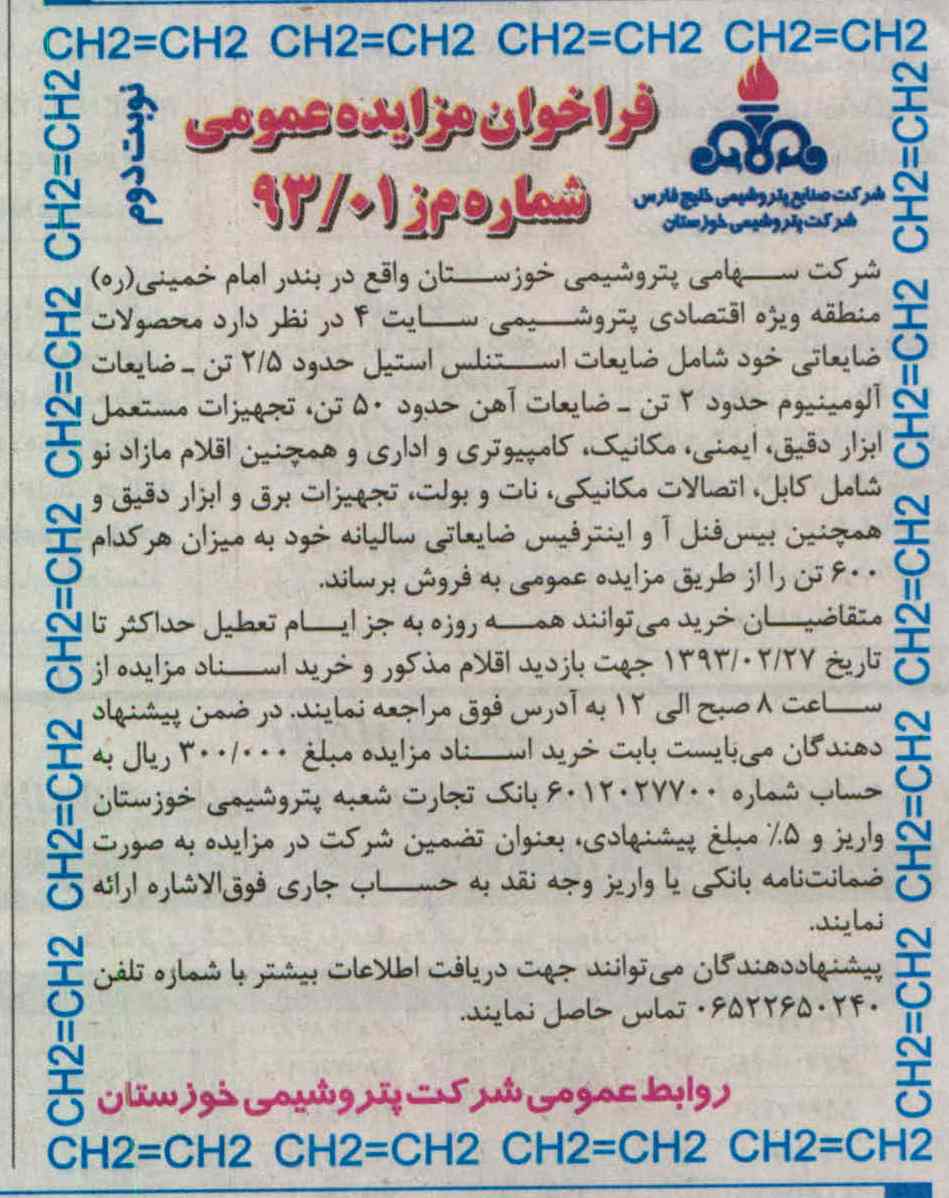 CH2=CH2 CH2=CH2 CH2=CH2 CH2=CH2
CH2=CH2 CH2=CH2 CH2=CH2 CH2=CH2 CH2=CH2
CH2=CH2 CH2=CH2 CH2=CH2 CH2=CH2 CH2=CH2
شرکت صنایع پتروشیمی خلیج فارس
شرکت پتروشیمی خوزستان
فراخوان مزایده عمومی
شماره م‌ز ۹۳/۰۱
نوبت دوم
شرکت سهامی پتروشیمی خوزستان واقع در بندر امام خمینی(ره)
منطقه ویژه اقتصادی پتروشیمی سایت ۴ در نظر دارد محصولات
ضایعاتی خود شامل ضایعات استنلس استیل حدود ۲/۵ تن ـ ضایعات
آلومینیوم حدود ۲ تن ـ ضایعات آهن حدود ۵۰ تن، تجهیزات مستعمل
ابزار دقیق، ایمنی، مکانیک، کامپیوتری و اداری و همچنین اقلام مازاد نو
شامل کابل، اتصالات مکانیکی، نات و بولت، تجهیزات برق و ابزار دقیق و
همچنین بیس‌فنل آ و اینترفیس ضایعاتی سالیانه خود به میزان هرکدام
۶۰۰ تن را از طریق مزایده عمومی به فروش برساند.
متقاضیان خرید می‌توانند همه روزه به جز ایام تعطیل حداکثر تا
تاریخ ۱۳۹۳/۰۲/۲۷ جهت بازدید اقلام مذکور و خرید اسناد مزایده از
ساعت ۸ صبح الی ۱۲ به آدرس فوق مراجعه نمایند. در ضمن پیشنهاد
دهندگان می‌بایست بابت خرید اسناد مزایده مبلغ ۳۰۰/۰۰۰ ریال به
حساب شماره ۶۰۱۲۰۲۷۷۰۰ بانک تجارت شعبه پتروشیمی خوزستان
واریز و ۵٪ مبلغ پیشنهادی، بعنوان تضمین شرکت در مزایده به صورت
ضمانت‌نامه بانکی یا واریز وجه نقد به حساب جاری فوق‌الاشاره ارائه
نمایند.
پیشنهاددهندگان می‌توانند جهت دریافت اطلاعات بیشتر با شماره تلفن
۰۶۵۲۲۶۵۰۲۴۰ تماس حاصل نمایند.
روابط عمومی شرکت پتروشیمی خوزستان
CH2=CH2 CH2=CH2 CH2=CH2 CH2=CH2